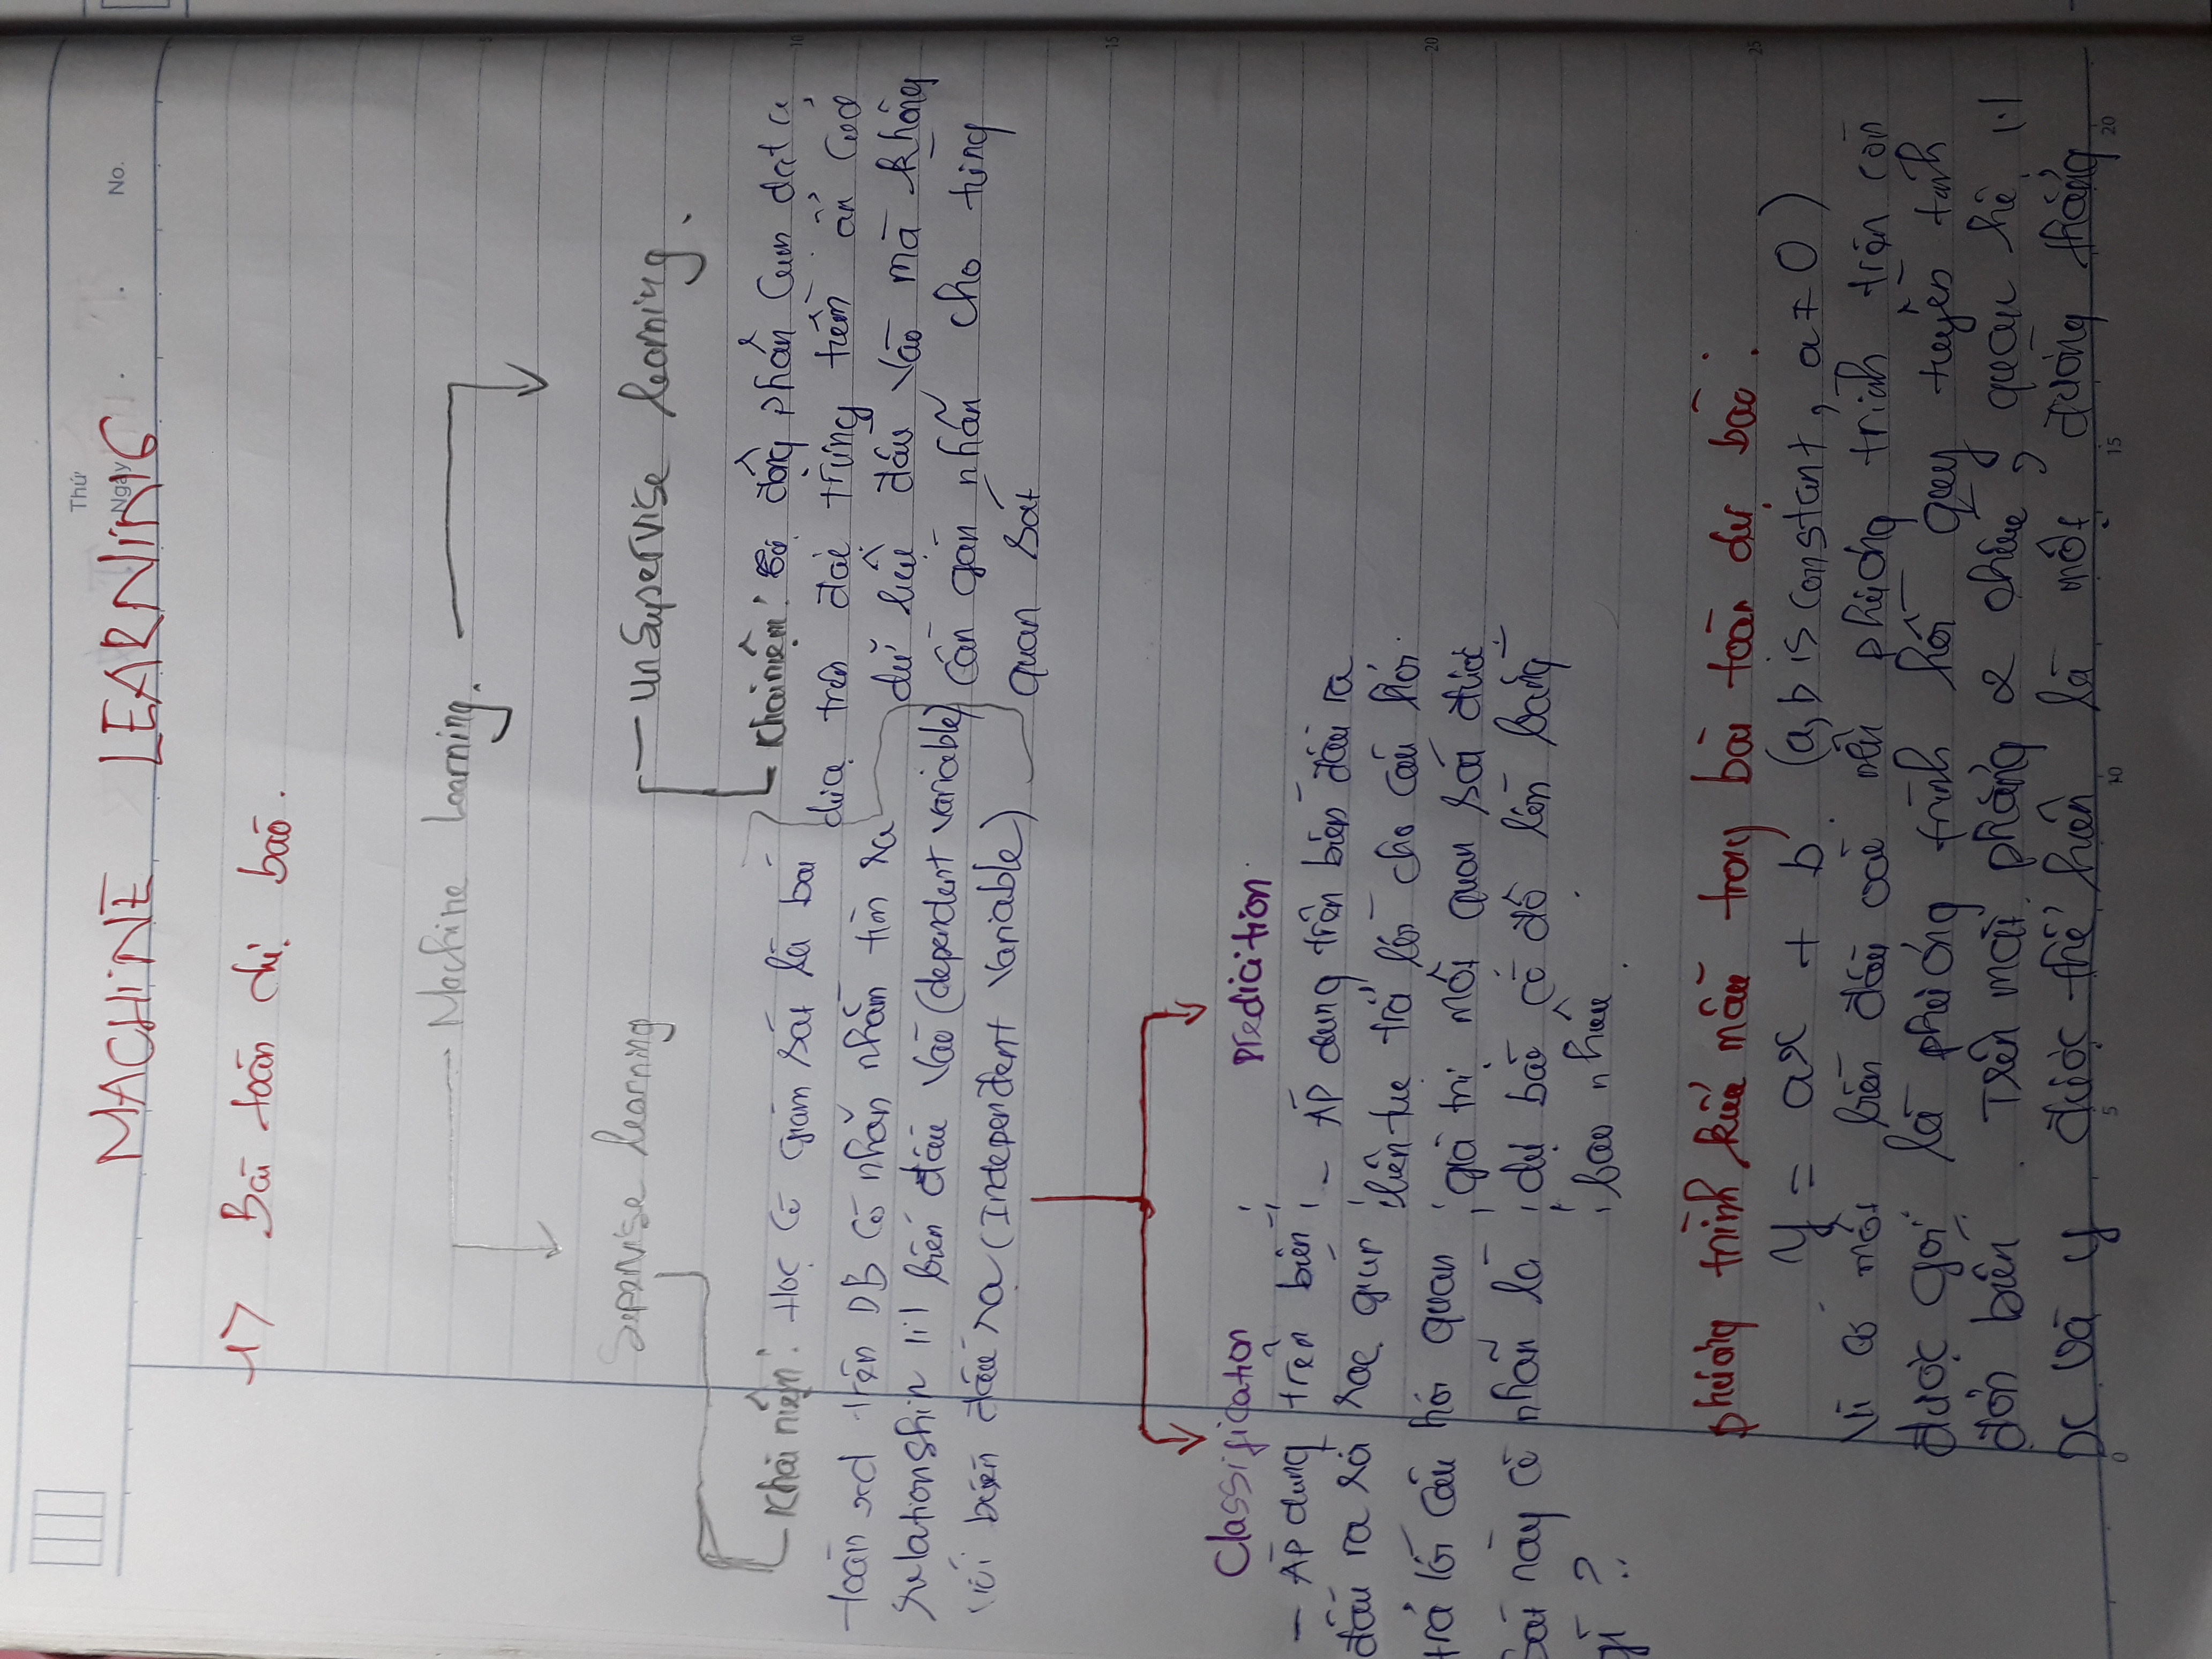 Thứ
Ngày
No.
MACHINE LEARNING
1> Bài toán dự báo.
Machine Learning.
Supervise learning
unsupervise learning.
Khái niệm: Học có giám sát là bài
toán xd trên DB có nhãn nhằm tìm ra
relationship biến đầu vào (dependent variable)
với biến đầu ra (Independent variable)
Khái niệm: động phân cụm data
dựa trên đặc trưng tiềm ẩn của
dữ liệu đầu vào mà không
cần gán nhãn cho từng
quan sát
Classification
- Áp dụng trên biến
đầu ra rời rạc giúp
trả lời câu hỏi quan
sát này có nhãn là
gì ?
Predicition
- Áp dụng trên biến đầu ra
liên tục trả lời cho câu hỏi
giá trị một quan sát được
dự báo có độ lớn bằng
bao nhiêu.
phương trình kiểu mẫu trong bài toán dự báo:
y = ax + b. (a, b is constant, a ≠ 0)
Vì có một biến đầu vào nên phương trình trên còn
được gọi là phương trình hồi quy tuyến tính
đơn biến. Trên mặt phẳng 2 chiều, quan hệ
x và y được thể hiện là một đường thẳng
5
10
15
20
25
0 5 10 15 20